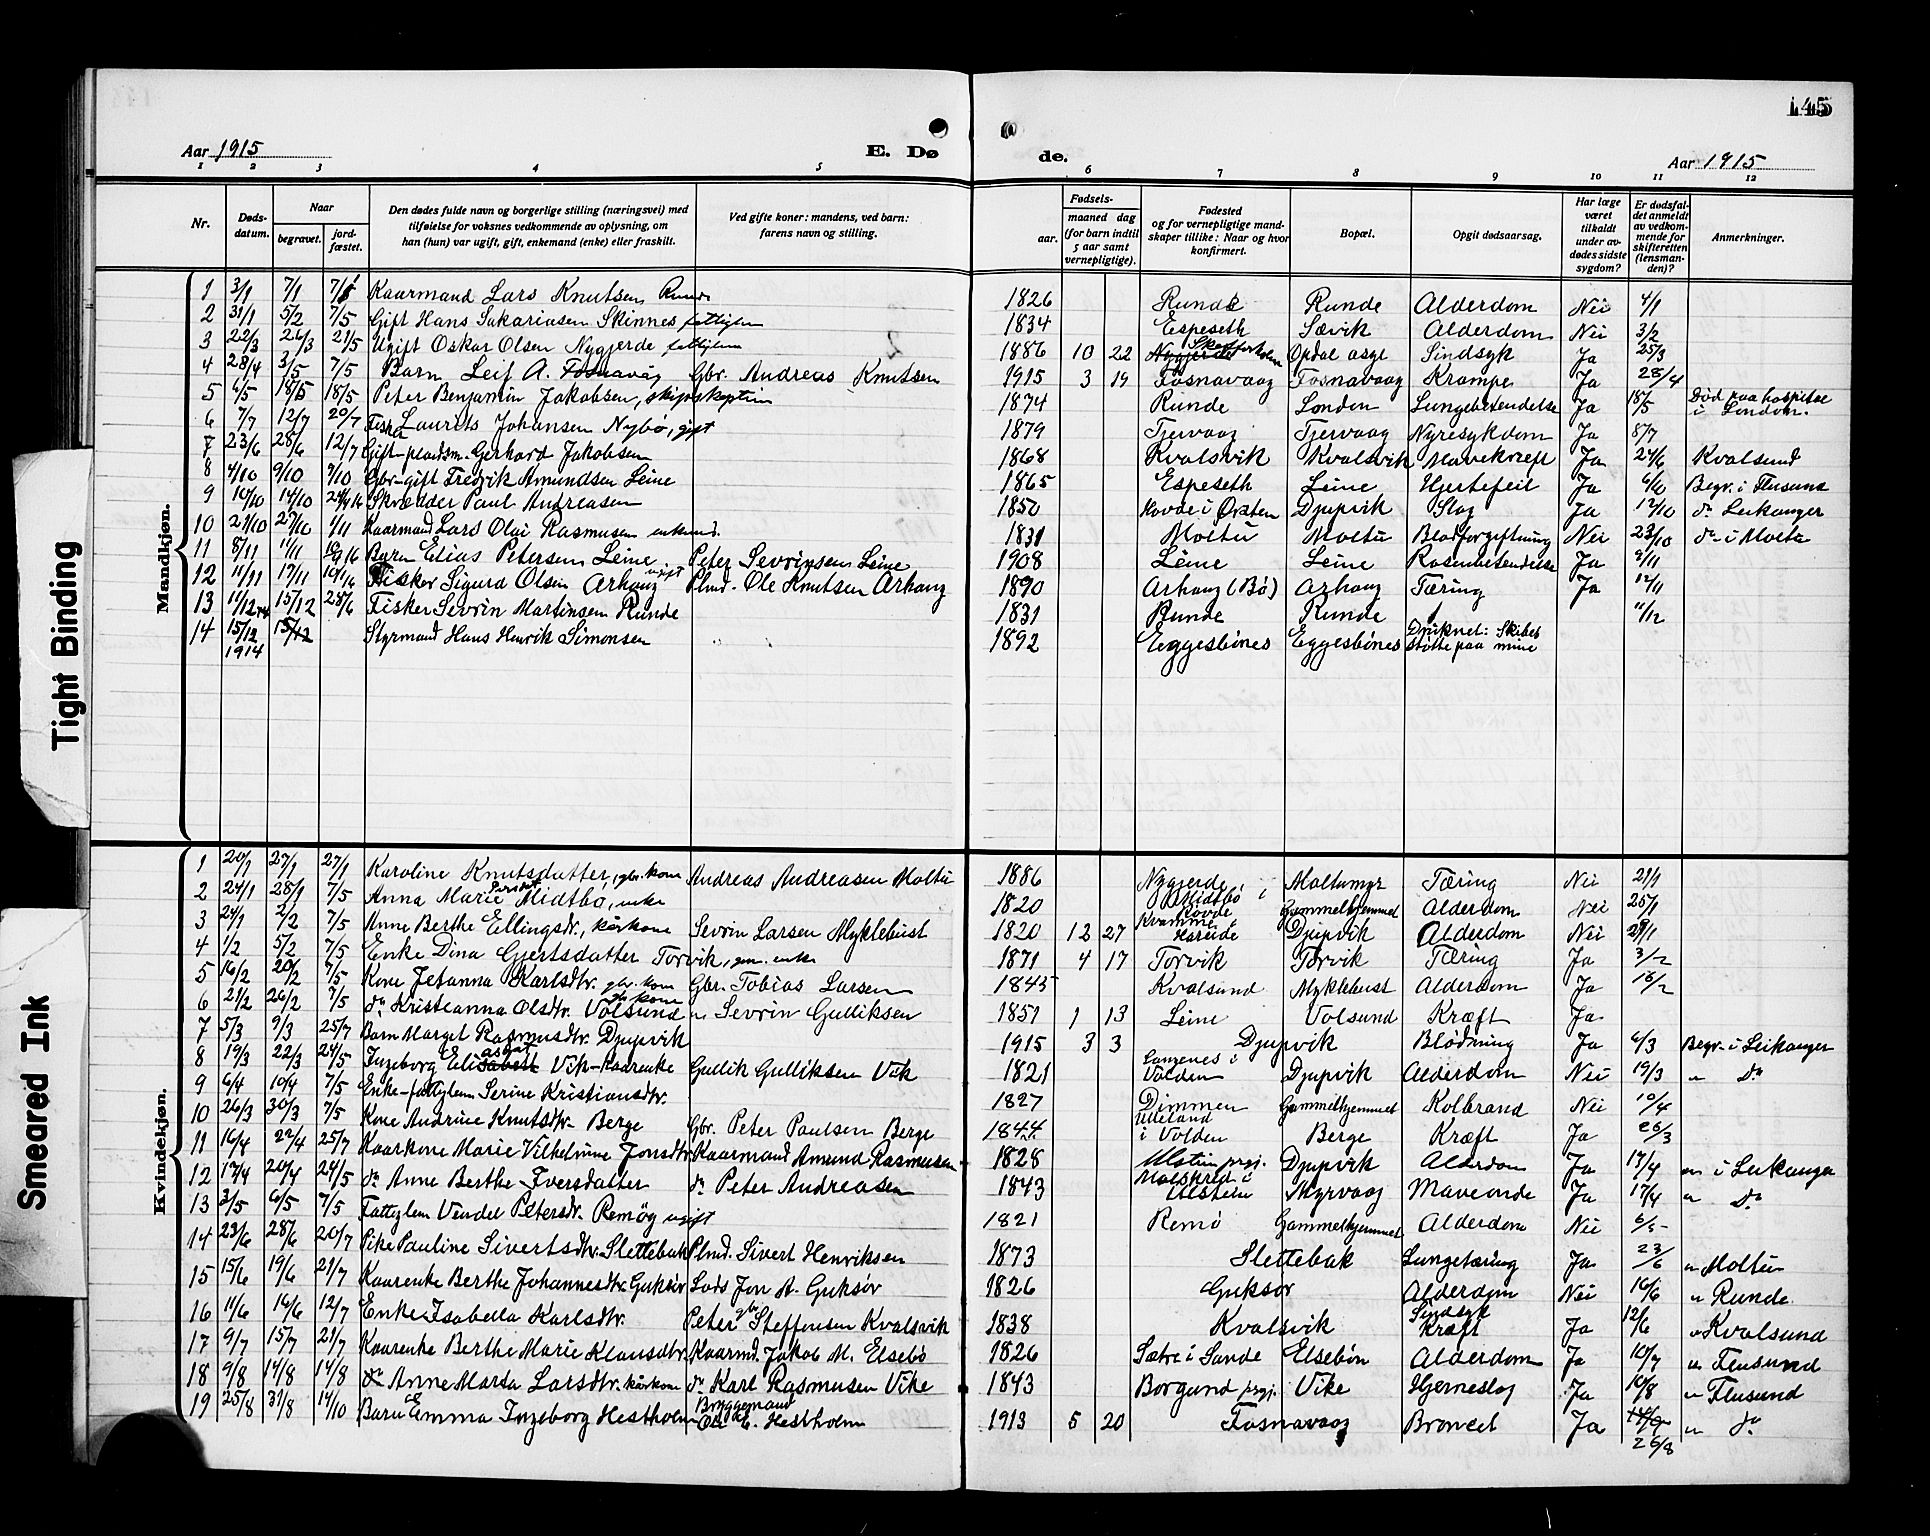 145
Aar 1915
E. Dø
de.
Aar 1915
1 2 3 4 5 6 7 8 9 10 11 12
Nr.
Døds-
datum.
Naar
begravet.
jord-
fæstet.
Den dødes fulde navn og borgerlige stilling (næringsvei) med
tilføielse for voksnes vedkommende av oplysning, om
han (hun) var ugift, gift, enkemand (enke) eller fraskilt.
Ved gifte koner: mandens, ved barn:
farens navn og stilling.
Fødsels-
aar.
maaned dag
(for barn indtil
5 aar samt
vernepligtige).
Fødested
og for vernepligtige mand-
skaper tillike: Naar og hvor
konfirmert.
Bopæl.
Opgit dødsaarsag.
Har læge
været
tilkaldt
under av-
dødes sidste
sygdom?
Er dødsfal-
det anmeldt
av vedkom-
mende for
skifteretten
(lensman-
den)?
Anmerkninger.
Mandkjøn.
1 3/1 7/1 Kaarmand Lars Knutsen Runde 1826 Runde Runde Alderdom Nei 4/1
2 31/1 5/2 7/5 Gift Hans Sakariasen Skinnes fattiglem 1834 Espeseth Sævik Alderdom Nei 3/2
3 22/3 26/3 21/5 Ugift Oskar Olsen Nygjerde fattiglem 1886 10 22 Nygjerde Opdal asyl Sindsyk Ja 25/3
4 28/4 3/5 7/5 Barn Leif A. Fosnavåg Gbr. Andreas Knutsen 1915 3 19 Fosnavaag Fosnavaag Krampe Ja 28/4
5 6/5 18/5 18/5 Peter Benjamin Jakobsen, skipskaptein 1874 Runde London Lungebetendelse Ja 18/5 Død paa hospital
i London.
6 7/7 12/7 20/7 Fisker Laurits Johansen Nybö, gift 1879 Tjervaag Tjervaag Nyresykdom Ja 8/7
7 23/6 28/6 12/7 Gift plandsm. Gerhard Jakobsen 1868 Kvalsvik Kvalsvik Mavekræft Ja 24/6 Kvalsund
8 4/10 9/10 9/10 Gbr. gift Fredrik Amundsen Leine 1865 Espeseth Leine Hjertefeil Ja 6/10 Begr. i Flusund
9 10/10 14/10 Skrædder Paul Andreasen 1850 Hovde i Ørsten Djupvik Slag Ja 12/10 do Leikanger
10 21/10 27/10 1/11 Kaarmand Lars Olai Rasmusen enkemd. 1831 Moltu Moltu Blodforgiftning Nei 23/10 do i Moltu
11 8/11 11/11 Barn Elias Petersen Leine Peter Sevrinsen Leine 1908 Leine Leine Rosenbetendelse Ja 9/11
12 11/11 17/11 Fisker Sigurd Olsen Arhaug ugift Plmd. Ole Knutsen Arhaug 1890 Arhaug (Bø) Arhaug Tæring Ja 12/11
13 11/12 15/12 28/6 Fisker Sevrin Martinsen Runde 1831 Runde Runde 11/12
14 15/12 15/12 Styrmand Hans Henrik Simonsen 1892 Eggesbönes Eggesbönes Druknet: Skibet
1914 støtte paa mine
Kvindekjøn.
1 20/1 27/1 27/1 Karoline Knutsdatter, gbr. kone Andreas Andreasen Moltu 1886 Nygjerde Moltumyr Tæring Nei 21/1
2 24/1 28/1 7/5 Anna Marie Midtbø, enke 1820 Midtbö i Hovde Gammelhjemmet Alderdom Nei 25/1
3 29/1 2/2 7/5 Anne Berthe Ellingsdr., kårkone Sevrin Larsen Myklebust 1820 12 27 Kvamme i Hareide Djupvik Alderdom Nei 29/1
4 1/2 5/2 7/5 Enke Dina Gjertsdatter Torvik, enke 1871 4 17 Torvik Torvik Tæring Ja 3/2
5 16/2 20/2 7/5 Kone Jetanna Karlsdtr. gbr. kone Gbr. Tobias Larsen 1845 Kvalsund Myklebust Alderdom Ja 18/2
6 21/2 26/2 7/5 do Kristianna Olsdtr. Volsund gbr kone " Sevrin Gulliksen 1851 1 13 Leine Volsund Kræft Ja
7 5/3 9/3 25/7 Barn Marget Rasmusdtr. Djupvik 1915 3 3 Djupvik Blødning Ja 6/3 Begr. i Leikanger
8 19/3 22/3 24/5 Ingeborg Elisabeth Vik-Kaarenke Gullik Gulliksen Vik 1821 Langenes i Volden Djupvik Alderdom Nei 19/3 " Do
9 6/4 10/4 7/5 Enke-fattiglem Serine Kristiansdtr. 1827 Dimmen Gammelhjemmet Kolbrand Nei 10/4
10 26/3 30/3 7/5 Kone Andrine Knutsdtr. Berge Gbr. Peter Paulsen Berge 1844 Ulleland i Volden Berge Kræft Ja 26/3
11 16/4 22/4 25/7 Kaarkone Marie Vilhelmine Jonsdtr. Kaarmand Amund Rasmusen 1828 Ulstein prgj. Djupvik Alderdom Ja 17/4 " i Leikanger
12 17/4 20/4 24/5 do Anne Berthe Iversdatter do Peter Andreasen 1843 Malskred i Ulstein Myrvaag Maveonde Ja 17/4 " Do
13 3/5 6/5 7/5 Fattiglem Vendel Petersdr. Remöy ugift 1821 Remö Gammelhjemmet Alderdom Nei 6/5
14 23/6 28/6 20/7 Pike Pauline Sivertsdtr. Slettebak Plmd. Sivert Henriksen 1873 Slettebak Lungetæring Ja 23/6 " Moltu
15 15/6 19/6 21/7 Kaarenke Berthe Johannesdtr. Gurskør Lods Jon A. Gurskør 1826 Gurskør Alderdom Nei 16/6 " Runde
16 11/6 16/6 12/7 Enke Isabella Karlsdtr. Peter gbr Steffensen Kvalsvik 1838 Kvalsvik Sindsyk Kræft Ja 12/6 " Kvalsund
17 9/7 15/7 21/7 Kaarenke Berthe Marie Klausdtr. Kaarmd. Jakob M. Elsebö 1826 Sætre i Sande Elsebön Alderdom Ja 10/7 " Flusund
18 9/8 14/8 14/8 do Anne Marta Larsdtr. kårkone do Karl Rasmusen Vike 1843 Borgund prgj. Vike Hjerneslag Ja 10/8 " Flusund
19 25/8 31/8 14/10 Barn Emma Ingeborg Hestholm Bryggemand Ole E. Hestholm 1913 5 20 Fosnavaag Broncet Ja 14/9 " do
26/8
Tight Binding
Smeared Ink